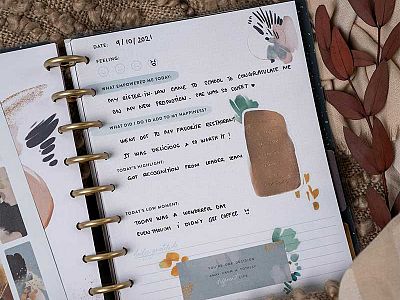 DATE: 9/10/2021
FEELING:
WHAT EMPOWERED ME TODAY?
MY SISTER-IN-LAW CAME TO SCHOOL TO CONGRATULATE ME
ON MY NEW PROMOTION. SHE WAS SO SWEET
WHAT DID I DO TO ADD TO MY HAPPINESS?
WENT OUT TO MY FAVORITE RESTAURANT
IT WAS DELICIOUS & SO WORTH IT!
TODAY'S HIGHLIGHT:
GOT RECOGNITION FROM LEADER TEAM
TODAY'S LOW MOMENT:
TODAY WAS A WONDERFUL DAY
EVEN THOUGH I DIDN'T GET COFFEE
YOU'RE ONE DECISION
AWAY FROM A TOTALLY
different LIFE